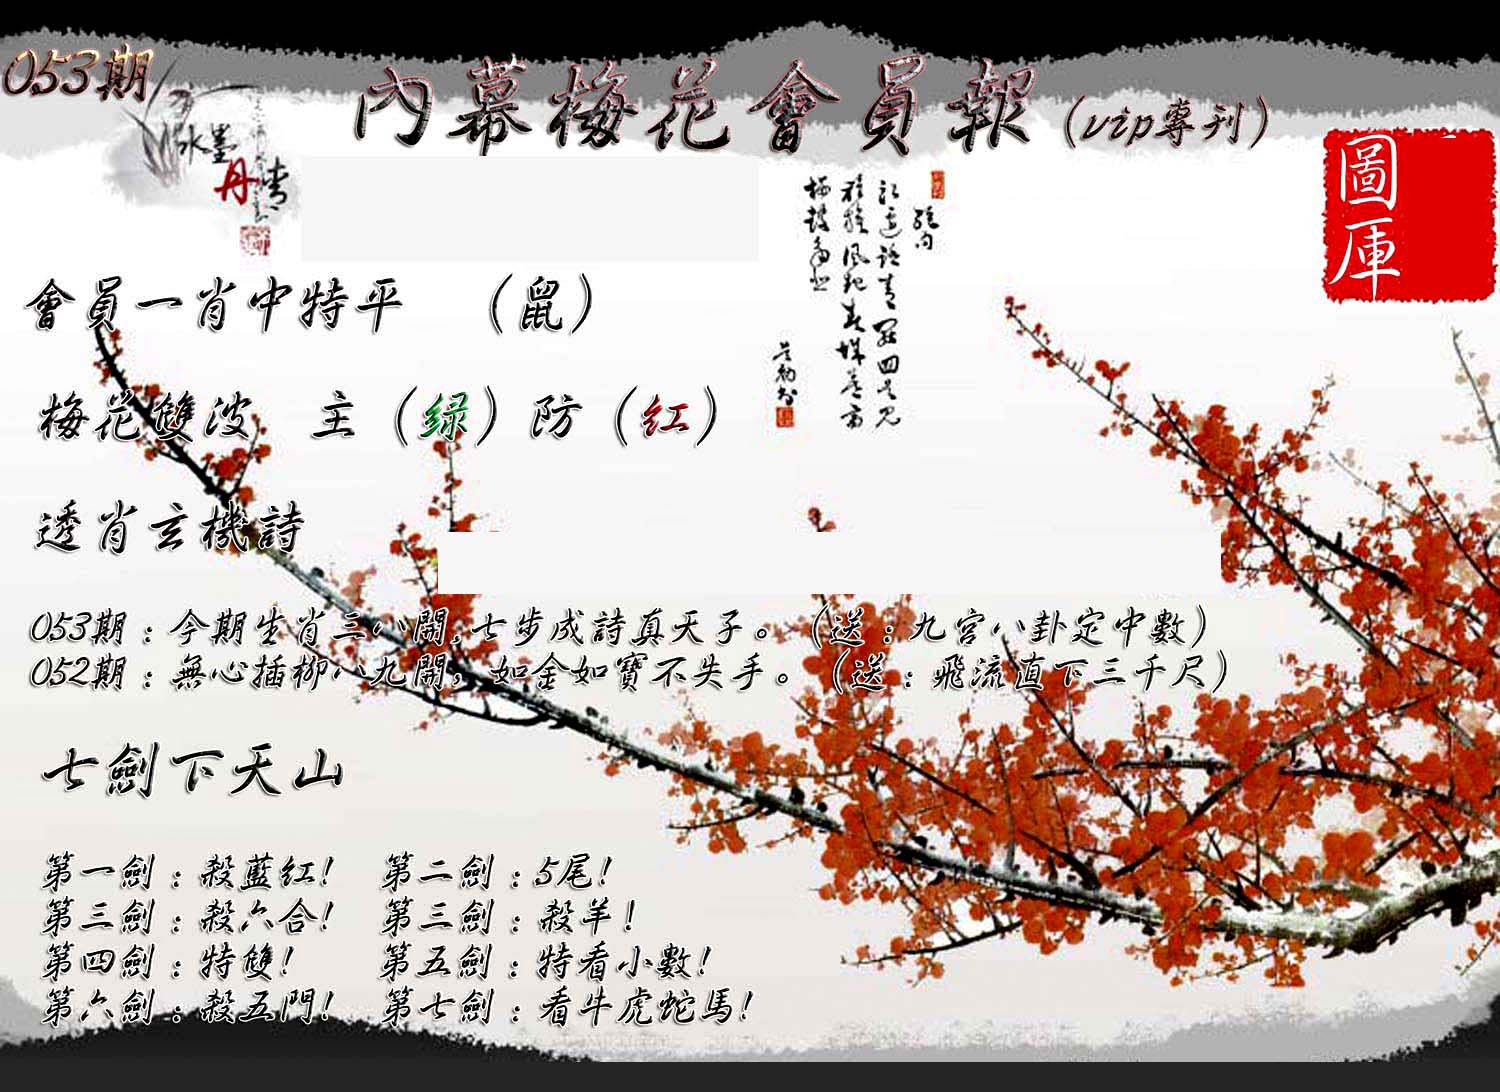 053期
內幕梅花會員報(vip專刊)
水墨
丹青
圖
庫
會員一肖中特平 (鼠)
梅花雙波 主(绿)防(红)
透肖玄機詩
053期:今期生肖三八開,七步成詩真天子。(送:九宮八卦定中數)
052期:無心插柳八九開,如金如寶不失手。(送:飛流直下三千尺)
七劍下天山
第一劍:殺藍紅! 第二劍:5尾!
第三劍:殺六合! 第三劍:殺羊!
第四劍:特雙! 第五劍:特看小數!
第六劍:殺五門! 第七劍:看牛虎蛇馬!